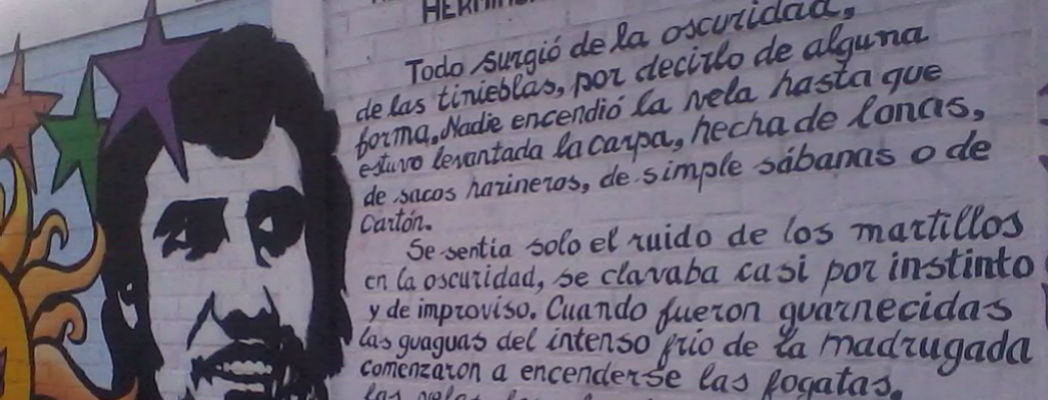 Todo surgió de la oscuridad,
de las tinieblas, por decirlo de alguna
forma. Nadie encendió la vela hasta que
estuvo levantada la carpa, hecha de lonas,
de sacos harineros, de simple sábanas o de
Cartón.
Se sentia solo el ruido de los martillos
en la oscuridad, se clavaba casi por instinto
y de improviso. Cuando fueron guarnecidas
las guaguas del intenso frio de la madrugada
comenzaron a encenderse las fogatas.